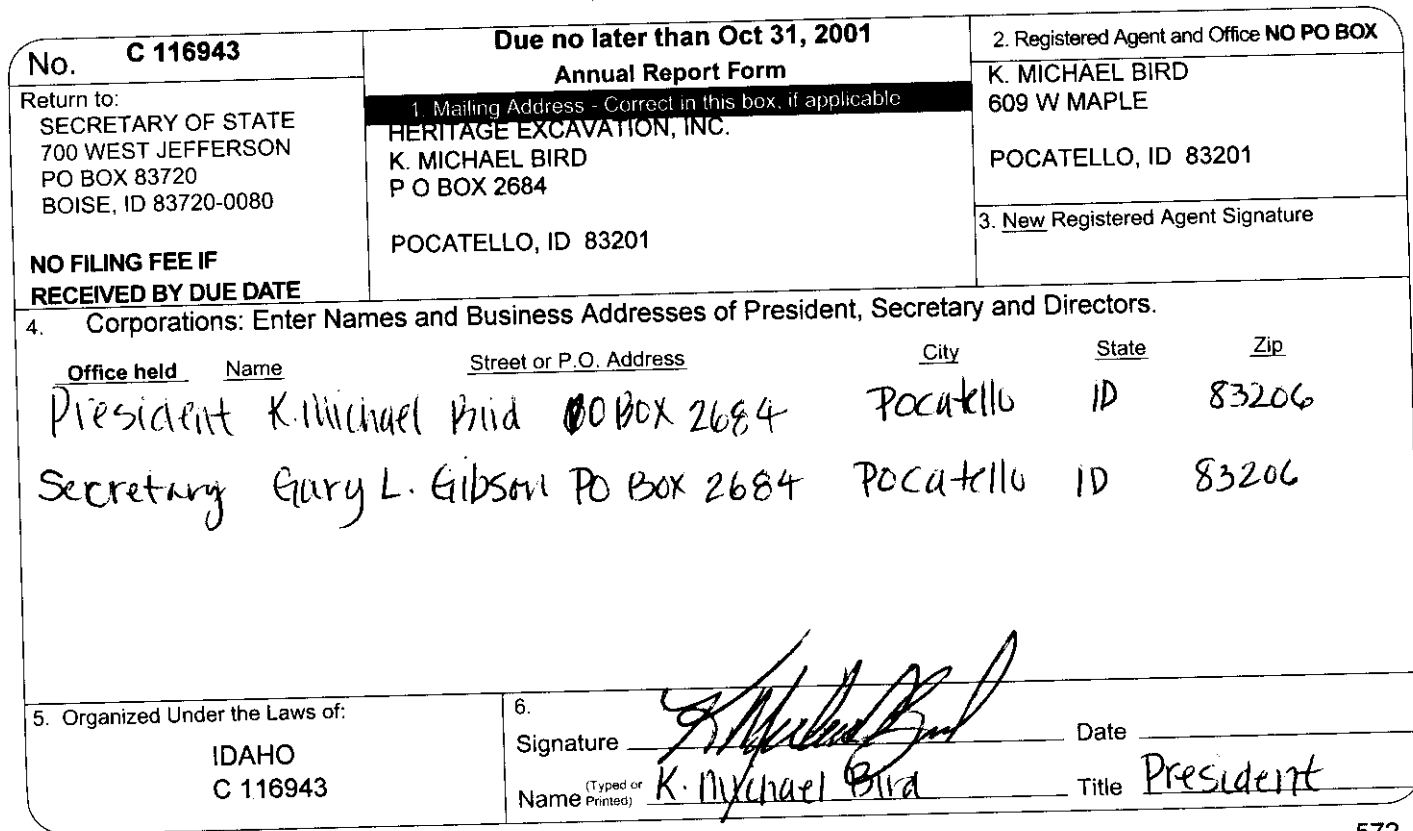 No. C 116943
Return to:
SECRETARY OF STATE
700 WEST JEFFERSON
PO BOX 83720
BOISE, ID 83720-0080
NO FILING FEE IF
RECEIVED BY DUE DATE
Due no later than Oct 31, 2001
Annual Report Form
1. Mailing Address - Correct in this box, if applicable
HERITAGE EXCAVATION, INC.
K. MICHAEL BIRD
P O BOX 2684
POCATELLO, ID 83201
2. Registered Agent and Office NO PO BOX
K. MICHAEL BIRD
609 W MAPLE
POCATELLO, ID 83201
3. New Registered Agent Signature
4. Corporations: Enter Names and Business Addresses of President, Secretary and Directors.
Office held Name Street or P.O. Address City State Zip
President K. Michael Bird PO BOX 2684 Pocatello ID 83206
Secretary Gary L. Gibson PO Box 2684 Pocatello ID 83206
5. Organized Under the Laws of:
IDAHO
C 116943
6.
Signature K Michael Bird Date
Name (Typed or Printed) K. Michael Bird Title President
572